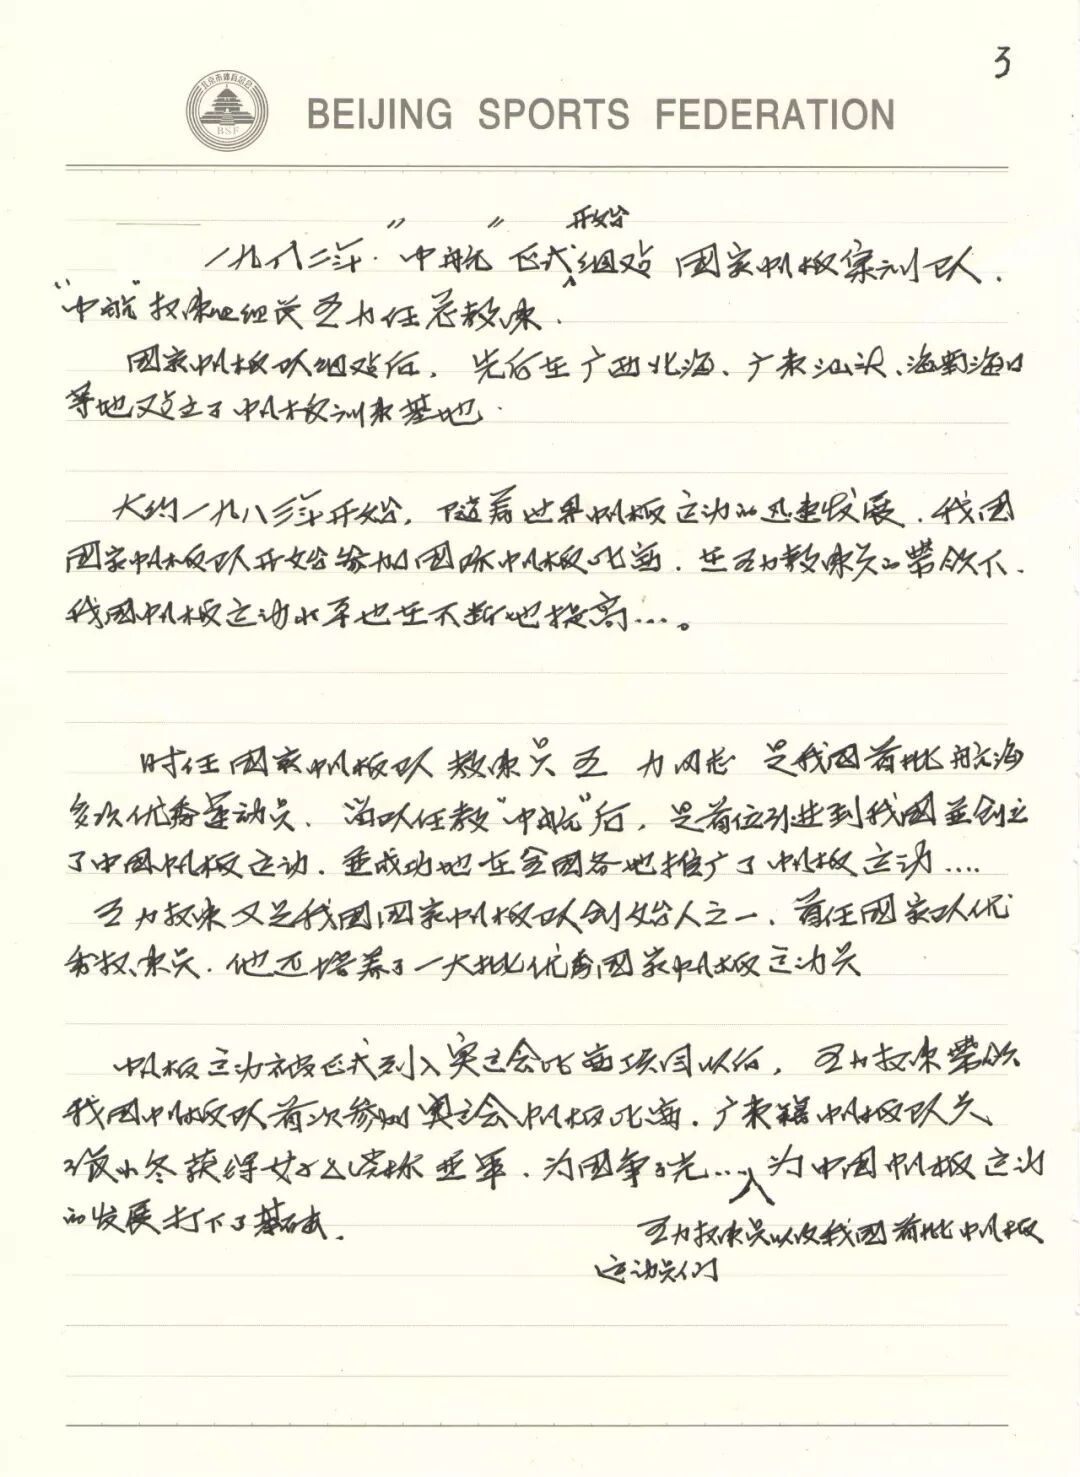 3
北京市体育总会
BSF
BEIJING SPORTS FEDERATION
开始
一九八二年.“中航”正式组建国家帆板集训队.
“中航”教练组组员王力任总教练.
国家帆板队组建后,先后在广西北海、广东汕头、海南海口
等地建立了帆板训练基地.
大约一九八三年开始,随着世界帆板运动的迅速发展.我国
国家帆板队开始参加国际帆板比赛.在王力教练员的带领下.
我国帆板运动水平也在不断地提高….。
时任国家帆板队教练员王 力同志 是我国首批航海
多次优秀运动员.当队任教“中航”后,是首位引进到我国并创立
了中国帆板运动.并成功地在全国各地推广了帆板运动….
王力教练又是我国国家帆板队创始人之一.首任国家队优
秀教练员.他还培养了一大批优秀国家帆板运动员
帆板运动被正式列入奥运会比赛项目以后,王力教练带领
我国帆板队首次参加奥运会帆板比赛.广东籍帆板队员
张小冬获得女子A级锦标亚军.为国争了光….为中国帆板运动
的发展打下了基础.
王力教练员以及我国首批帆板
运动员们